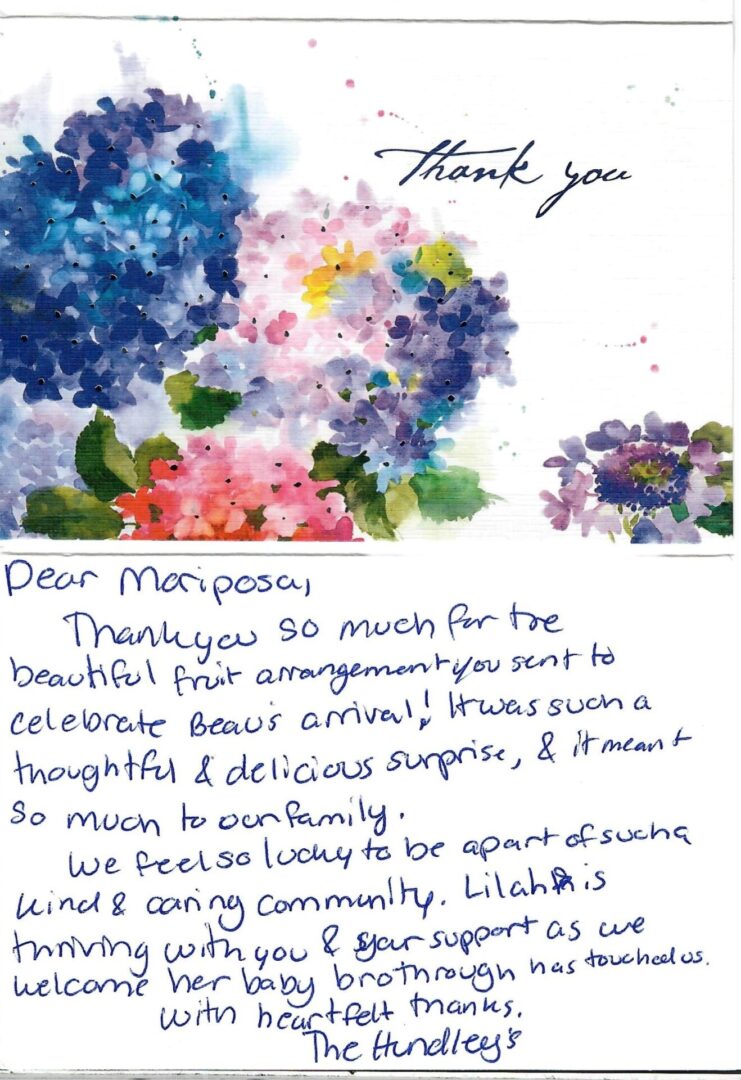 Thank you
Dear Mariposa,
Thank you so much for the
beautiful fruit arrangement you sent to
celebrate Beau's arrival! It was such a
thoughtful & delicious surprise, & it meant
so much to our family.
We feel so lucky to be apart of such a
kind & caring community. Lilah is
thriving with you & your support as we
welcome her baby brothrough has touched us.
with heartfelt thanks.
The Hundley's